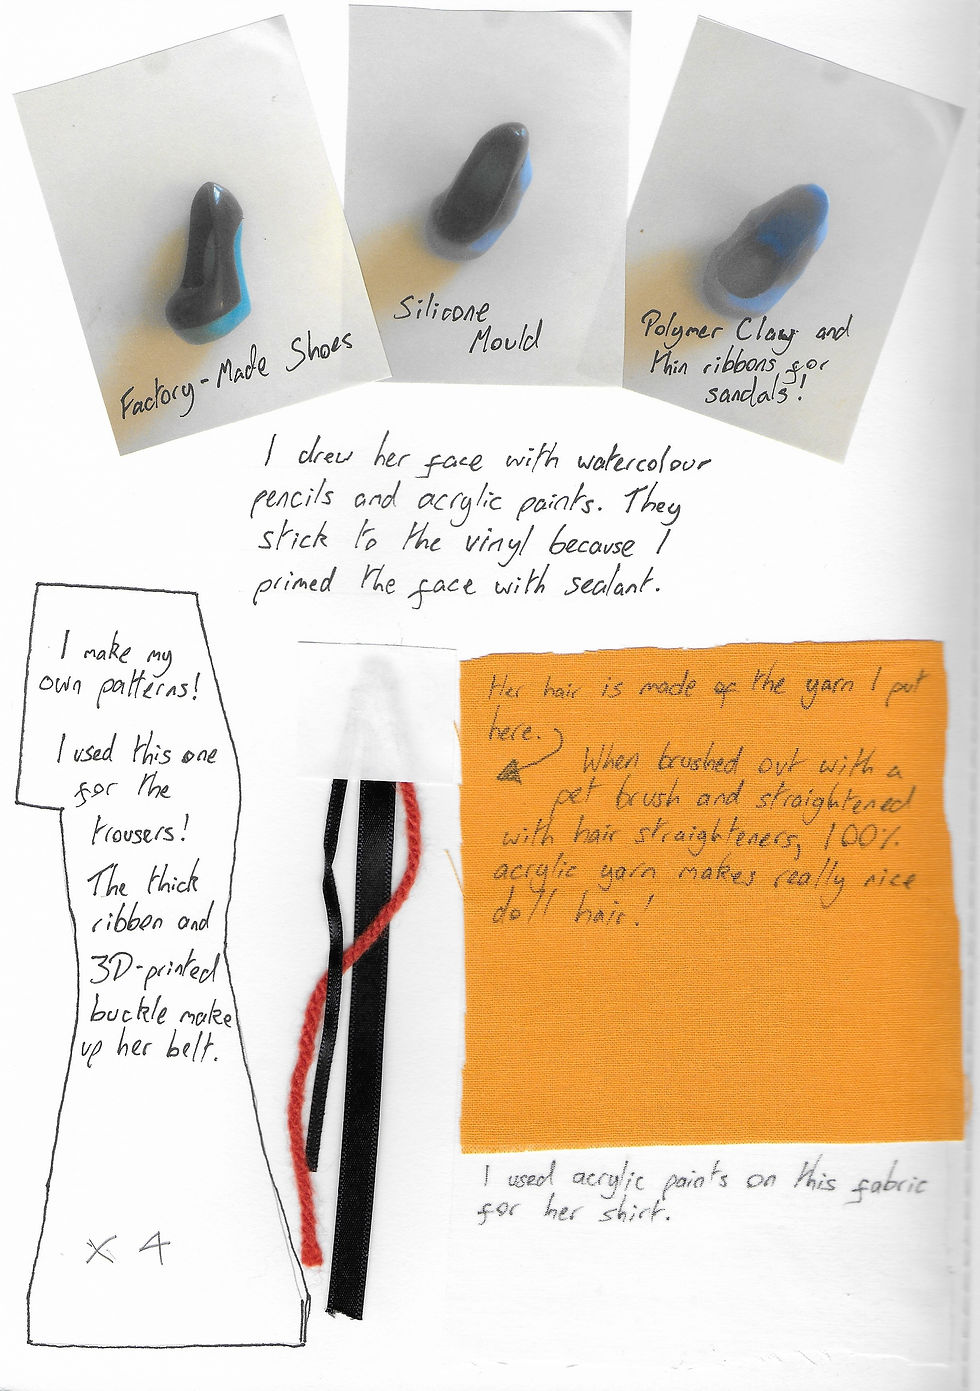 Factory-Made Shoes
Silicone
Mould
Polymer Clay and
thin ribbons for
sandals!
I drew her face with watercolour
pencils and acrylic paints. They
stick to the vinyl because I
primed the face with sealant.
I make my
own patterns!
I used this one
for the
trousers!
The thick
ribbon and
3D-printed
buckle make
up her belt.
x 4
Her hair is made of the yarn I put
here.
When brushed out with a
pet brush and straightened
with hair straighteners, 100%
acrylic yarn makes really nice
doll hair!
I used acrylic paints on this fabric
for her shirt.